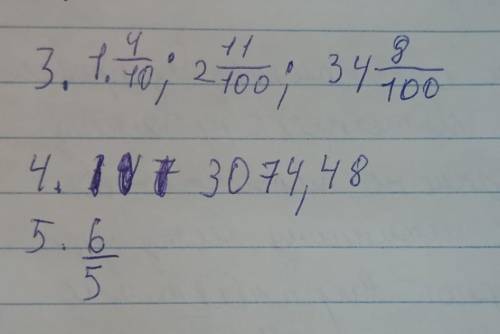 3. 1. 4/10; 2 11/100; 34 8/100
4. 3074,48
5. 6/5